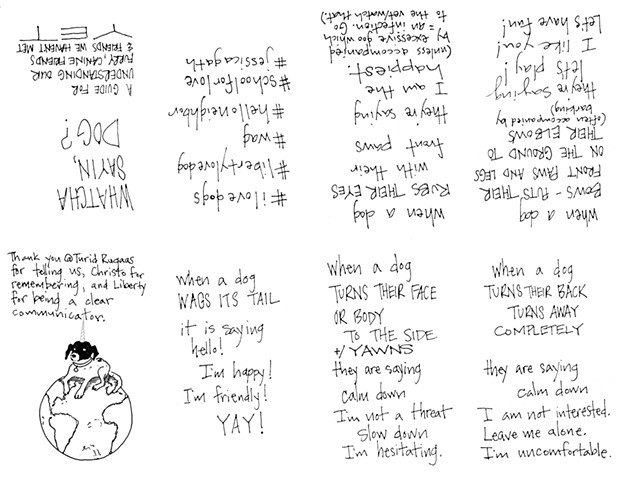 WHATCHA
SAYIN,
DOG?
A GUIDE FOR
UNDERSTANDING OUR
FURRY, CANINE FRIENDS
& FRIENDS WE HAVENT MET
YET
#ilovedogs
#libertylovedog
#wag
#helloneighbor
#schoolforlove
#jessicagath
when a dog
RUBS THEIR EYES
with their
front paws
they're saying
I am the
happiest.
(unless accompanied
by excessive goo which
= an infection. Go
to the vet/watch that.)
when a dog
BOWS - PUTS THEIR
FRONT PAWS AND LEGS
ON THE GROUND TO
THEIR ELBOWS
(often accompanied by
barking)
they're saying
let's play!
I like you!
Let's have fun!
Thank you @Turid Rugaas
for telling us, Christo for
remembering, and Liberty
for being a clear
communicator.
when a dog
WAGS ITS TAIL
it is saying
hello!
I'm happy!
I'm friendly!
YAY!
When a dog
TURNS THEIR FACE
OR BODY
TO THE SIDE
+/YAWNS
they are saying
calm down
I'm not a threat
Slow down
I'm hesitating.
When a dog
TURNS THEIR BACK
TURNS AWAY
COMPLETELY
they are saying
calm down
I am not interested.
Leave me alone.
I'm uncomfortable.